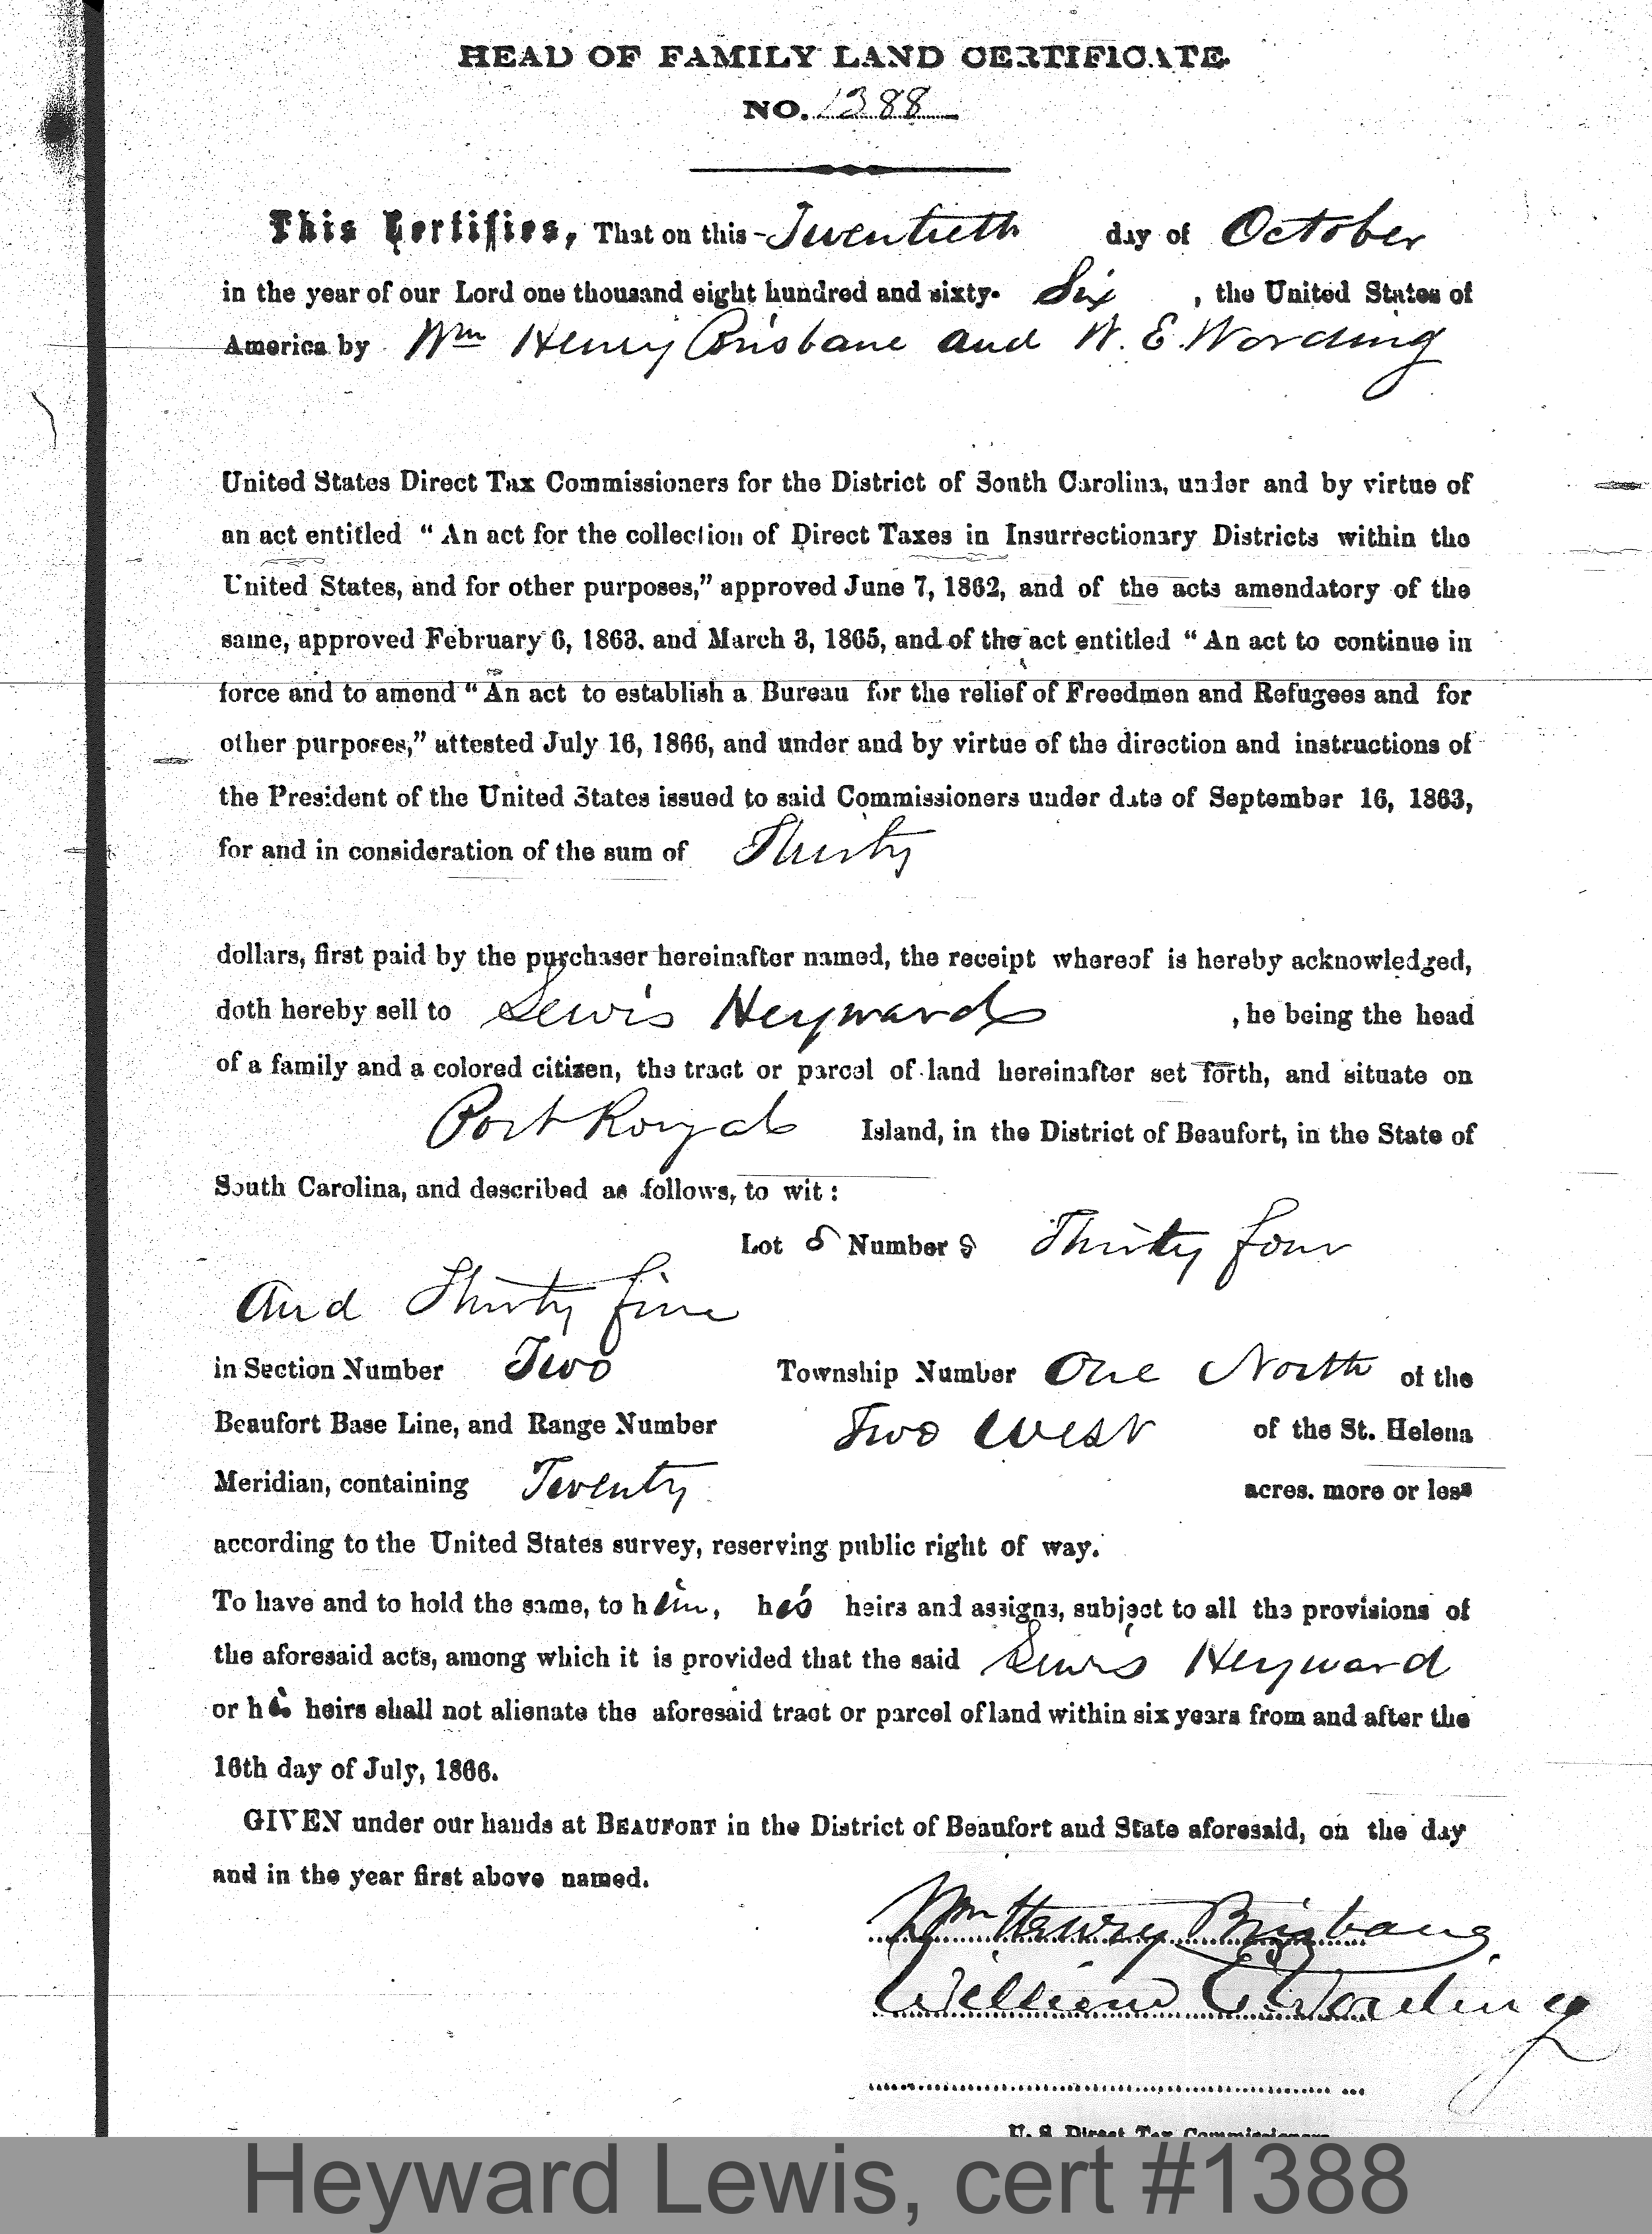 HEAD OF FAMILY LAND CERTIFICATE.
NO. 1388
This Certifies, That on this Twentieth day of October
in the year of our Lord one thousand eight hundred and sixty- Six , the United States of
America by Wm Henry Brisbane and W. E. Wording
United States Direct Tax Commissioners for the District of South Carolina, under and by virtue of
an act entitled “ An act for the collection of Direct Taxes in Insurrectionary Districts within the
United States, and for other purposes,” approved June 7, 1862, and of the acts amendatory of the
same, approved February 6, 1863, and March 3, 1865, and of the act entitled “ An act to continue in
force and to amend “ An act to establish a Bureau for the relief of Freedmen and Refugees and for
other purposes,” attested July 16, 1866, and under and by virtue of the direction and instructions of
the President of the United States issued to said Commissioners under date of September 16, 1863,
for and in consideration of the sum of Thirty
dollars, first paid by the purchaser hereinafter named, the receipt whereof is hereby acknowledged,
doth hereby sell to Lewis Heyward , he being the head
of a family and a colored citizen, the tract or parcel of land hereinafter set forth, and situate on
Port Royal Island, in the District of Beaufort, in the State of
South Carolina, and described as follows, to wit :
Lot s Number s Thirty four
and Thirty five
in Section Number Two Township Number One North of the
Beaufort Base Line, and Range Number Two West of the St. Helena
Meridian, containing Twenty acres. more or less
according to the United States survey, reserving public right of way.
To have and to hold the same, to him, his heirs and assigns, subject to all the provisions of
the aforesaid acts, among which it is provided that the said Lewis Heyward
or his heirs shall not alienate the aforesaid tract or parcel of land within six years from and after the
16th day of July, 1866.
GIVEN under our hands at BEAUFORT in the District of Beaufort and State aforesaid, on the day
and in the year first above named.
Wm Henry Brisbane
William E. Wording
U. S. Direct Tax Commissioners
Heyward Lewis, cert #1388